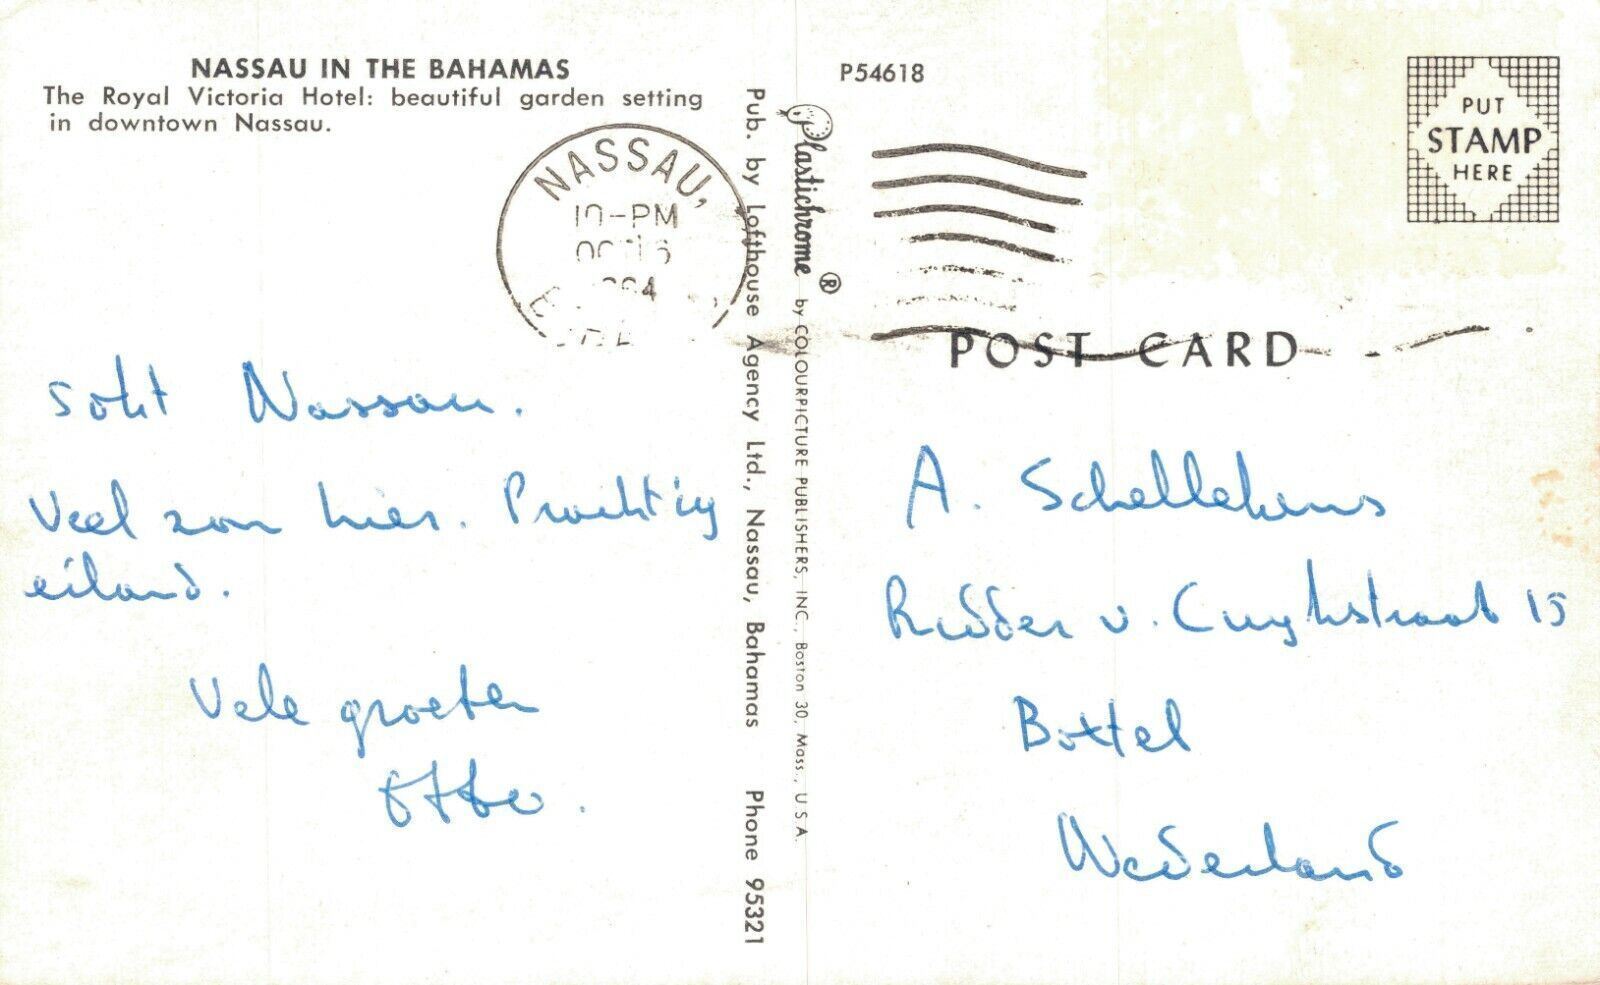 NASSAU IN THE BAHAMAS
The Royal Victoria Hotel: beautiful garden setting
in downtown Nassau.
NASSAU,
10-PM
OCT 16
Nassau.
Veel zon hier. Prachtig
eiland.
Vele groeten
Otto.
Pub. by Lofthouse Agency Ltd., Nassau, Bahamas Phone 95321
Plastichrome ® by COLOURPICTURE PUBLISHERS, INC., Boston 30, Mass., U.S.A.
P54618
PUT
STAMP
HERE
POST CARD
A. Schellekens
Ridder v. Cuykstraat 15
Boxtel
Nederland